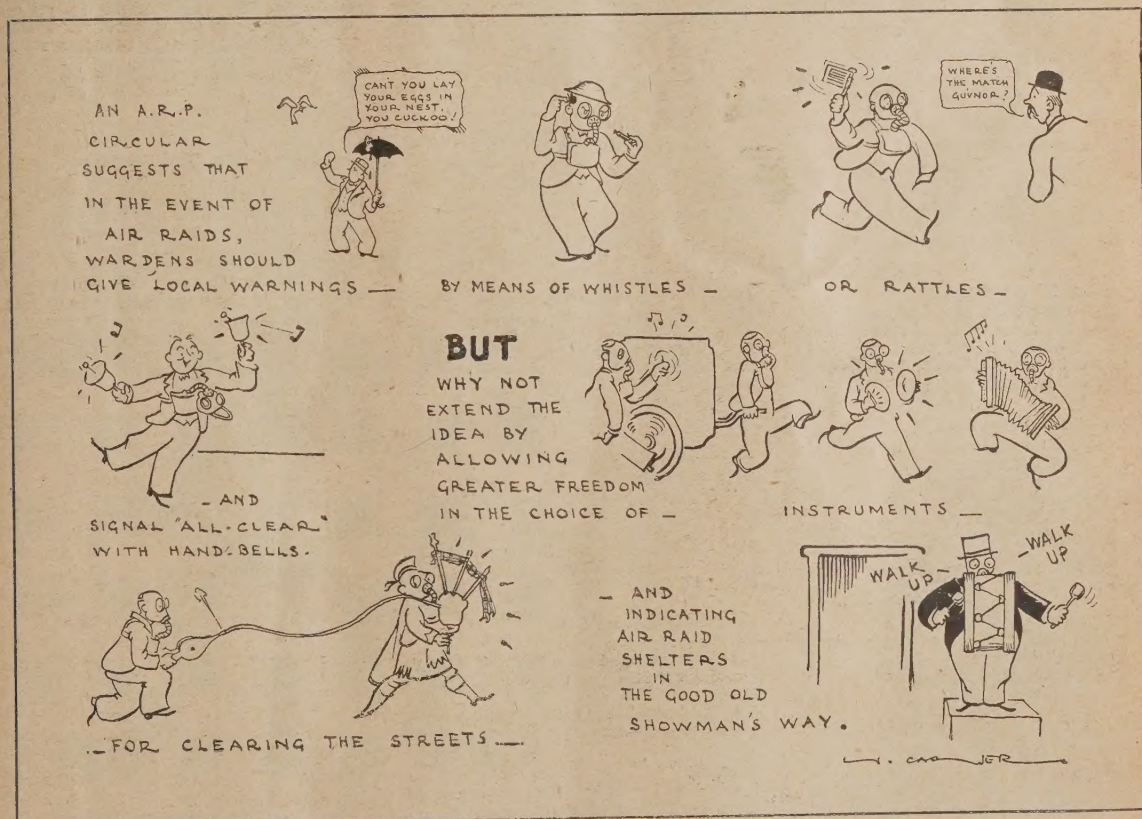 AN A.R.P.
CIRCULAR
SUGGESTS THAT
IN THE EVENT OF
AIR RAIDS,
WARDENS SHOULD
GIVE LOCAL WARNINGS —
CAN'T YOU LAY
YOUR EGGS IN
YOUR NEST,
YOU CUCKOO!
BY MEANS OF WHISTLES —
WHERE'S
THE MATCH
GUVNOR?
OR RATTLES —
— AND
SIGNAL "ALL-CLEAR"
WITH HAND-BELLS.
BUT
WHY NOT
EXTEND THE
IDEA BY
ALLOWING
GREATER FREEDOM
IN THE CHOICE OF —
INSTRUMENTS —
— FOR CLEARING THE STREETS —
— AND
INDICATING
AIR RAID
SHELTERS
IN
THE GOOD OLD
SHOWMAN'S WAY.
WALK
UP —
— WALK
UP